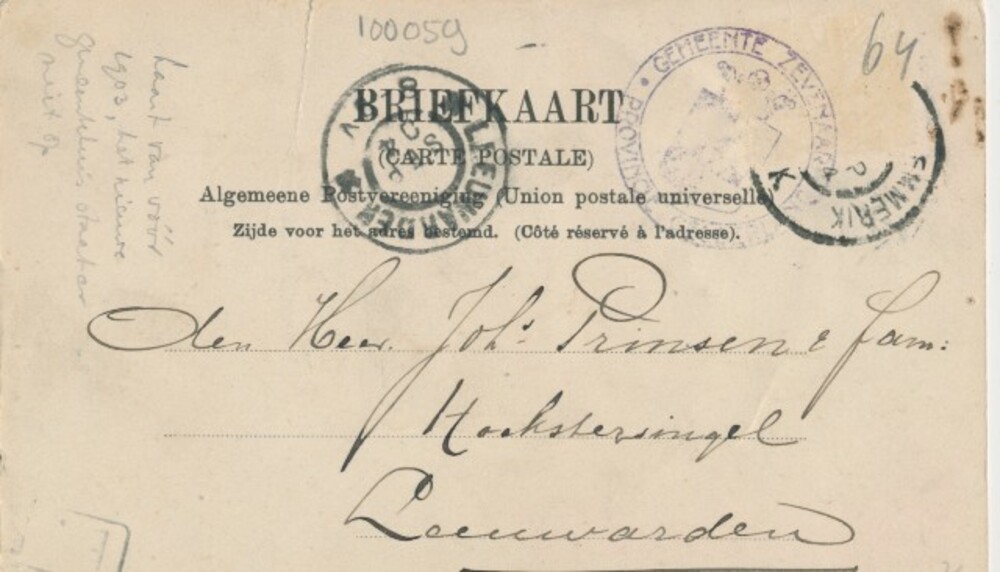 100059
64
kaart van vóór
1903, het nieuwe
gemeentehuis staat er
niet op
GEMEENTE ZEVENAAR
PROVINCIE
BRIEFKAART
(CARTE POSTALE)
Algemeene Postvereeniging (Union postale universelle)
Zijde voor het adres bestemd. (Côté réservé à l'adresse).
LEEUWARDEN
EMMERIK
den Heer. Johs Prinsen & fam:
Hoekstersingel
Leeuwarden